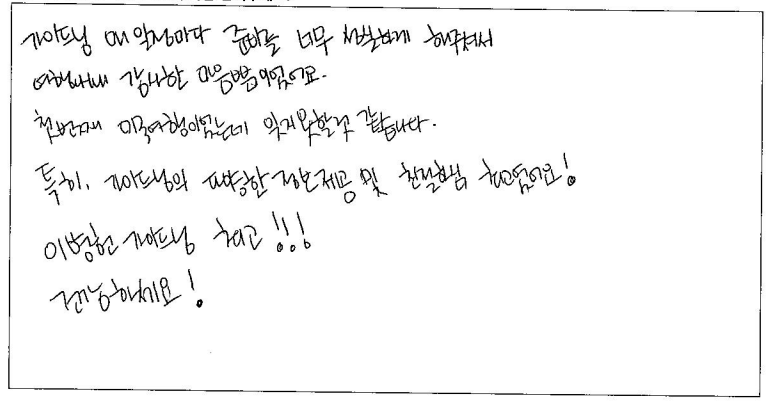 가이드님 매 일정마다 준비를 너무 철저하게 해주셔서
여행내내 감사한 마음뿐이었어요.
첫번째 미국여행이었는데 잊지못할것 같습니다.
특히, 가이드님의 다양한 정보제공 및 친절함 최고였어요!
이병헌 가이드님 최고!!!
건강하세요!